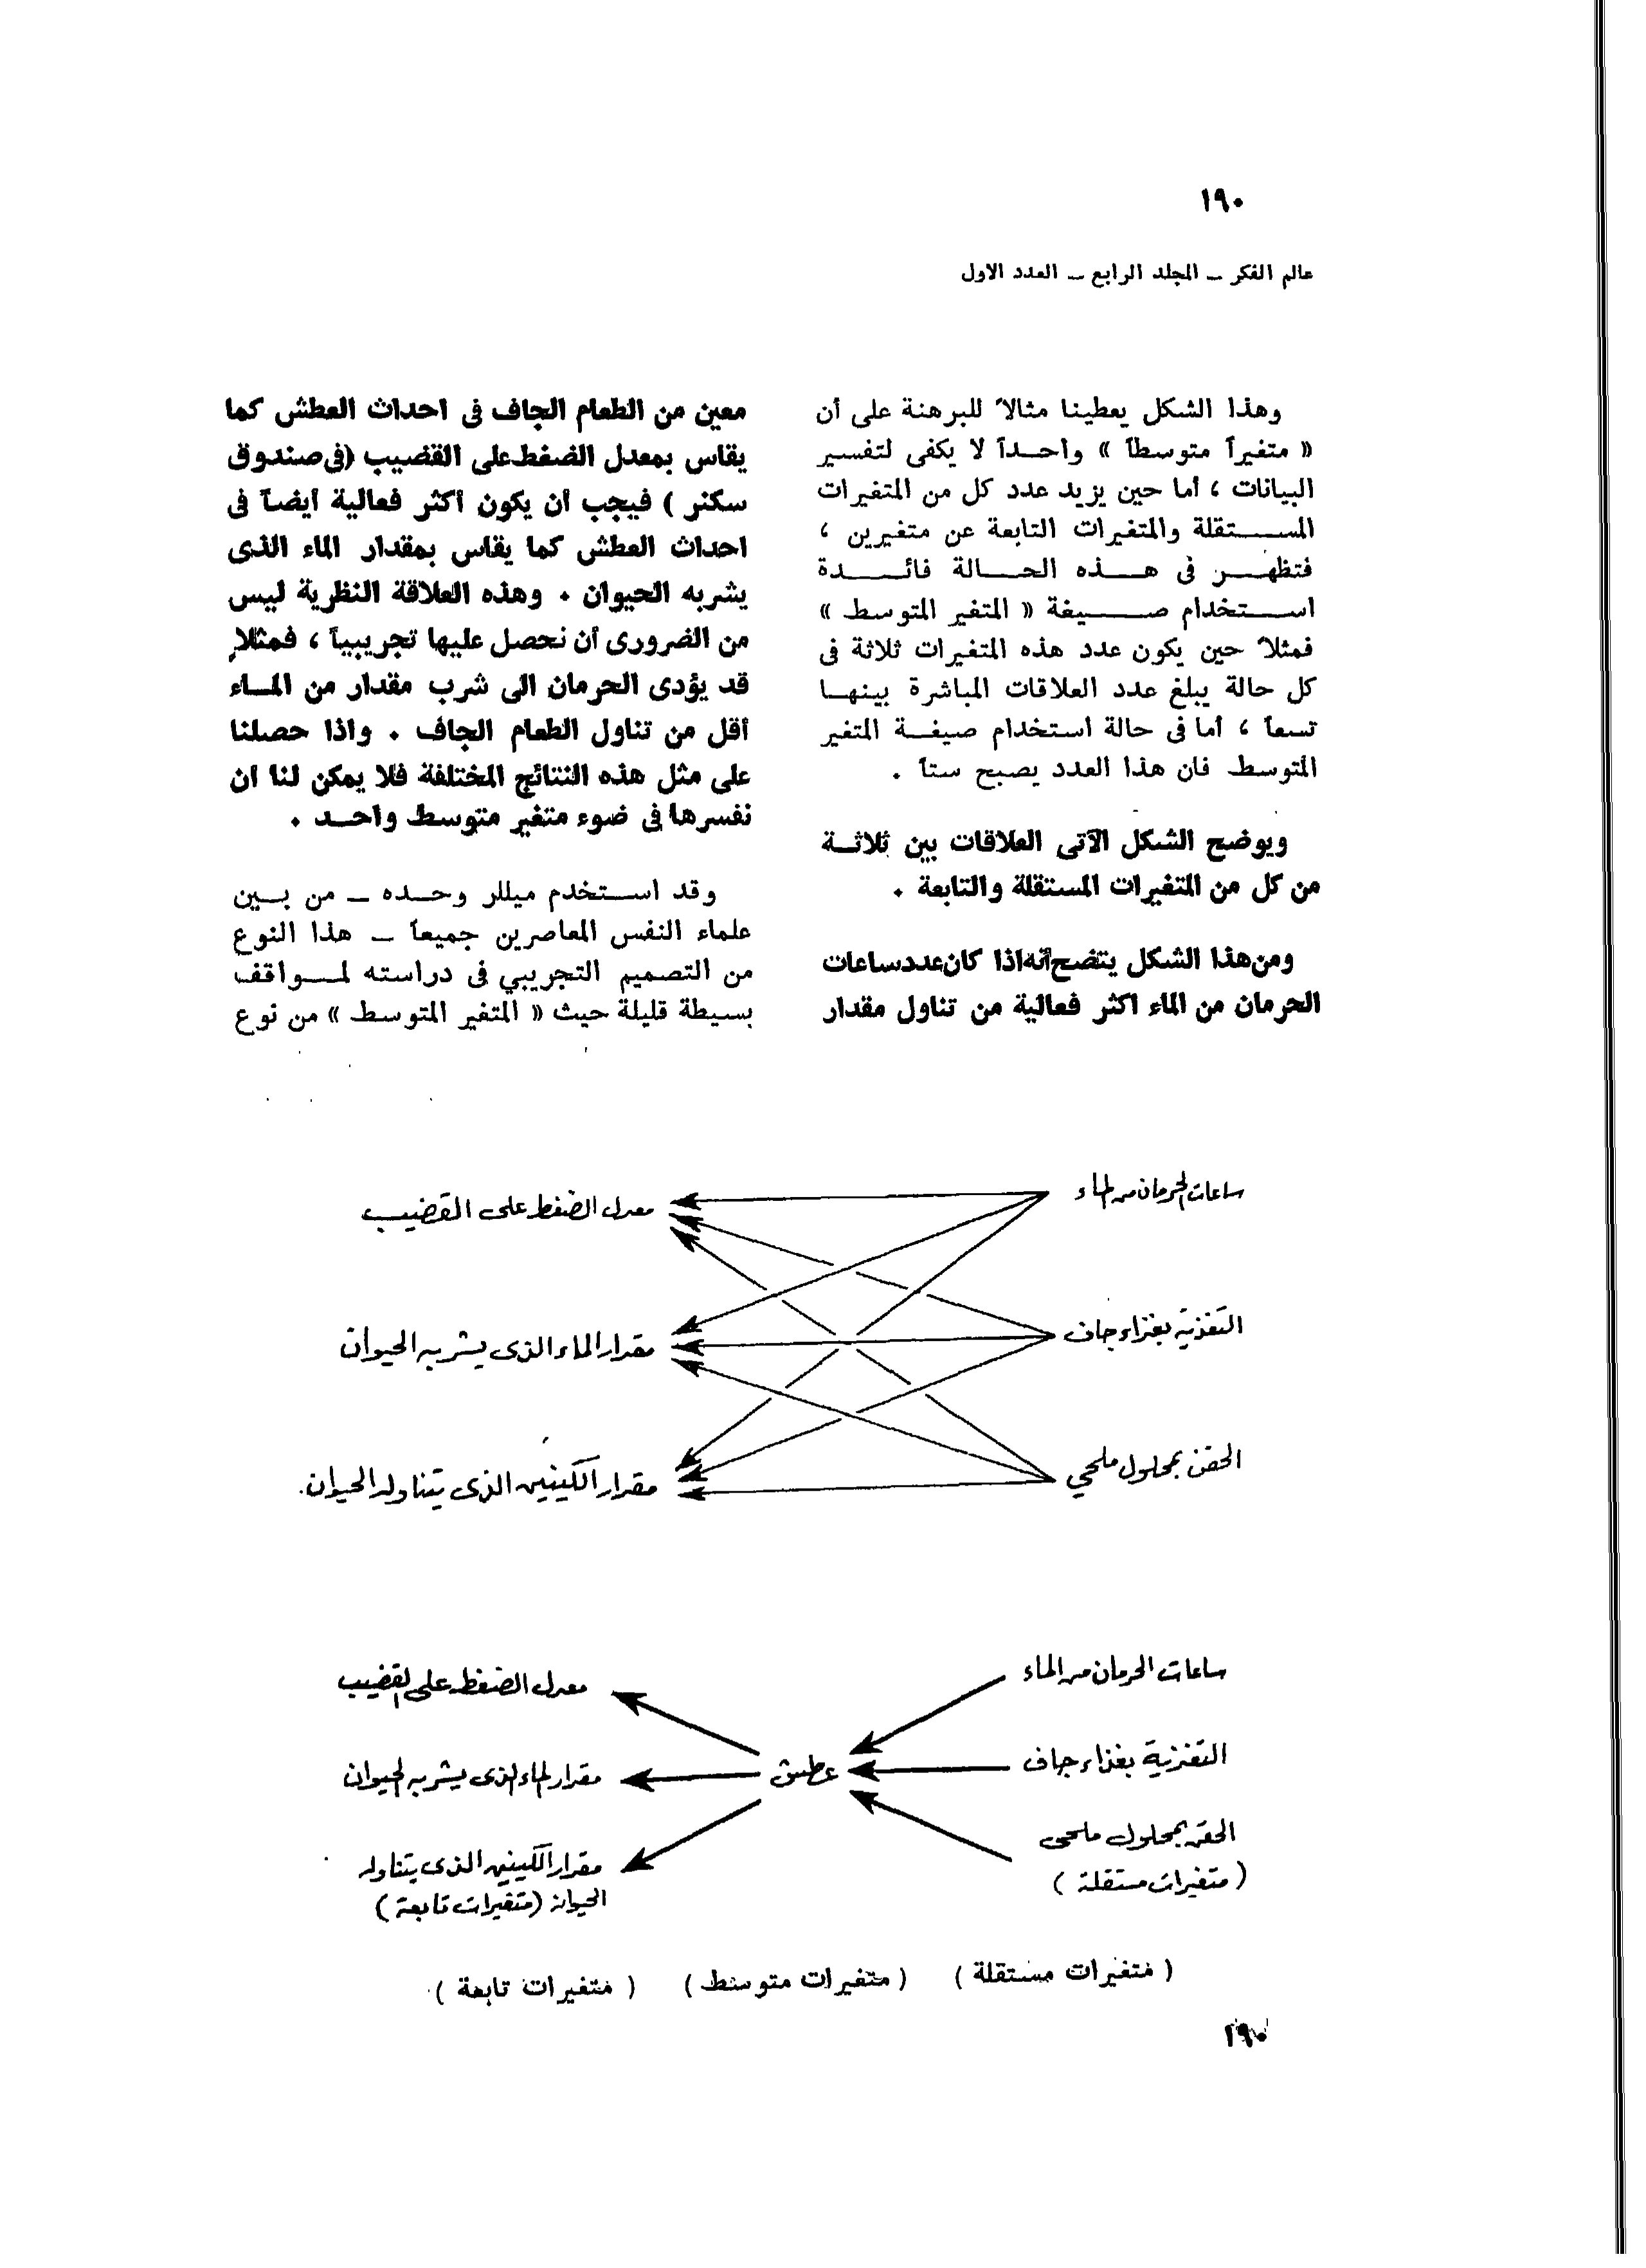 ١٩٠
عالم الفكر ــ المجلد الرابع ــ العدد الاول
وهذا الشكل يعطينا مثالاً للبرهنة على أن
« متغيراً متوسطاً » واحداً لا يكفى لتفسير
البيانات ، أما حين يزيد عدد كل من المتغيرات
المستقلة والمتغيرات التابعة عن متغيرين ،
فتظهر فى هذه الحالة فائدة
استخدام صيغة « المتغير المتوسط »
فمثلاً حين يكون عدد هذه المتغيرات ثلاثة فى
كل حالة يبلغ عدد العلاقات المباشرة بينها
تسعاً ، أما فى حالة استخدام صيغة المتغير
المتوسط فان هذا العدد يصبح ستاً .
ويوضح الشكل الآتى العلاقات بين ثلاثة
من كل من المتغيرات المستقلة والتابعة .
ومن هذا الشكل يتضح أنه اذا كان عدد ساعات
الحرمان من الماء اكثر فعالية من تناول مقدار
معين من الطعام الجاف فى احداث العطش كما
يقاس بمعدل الضغط على القضيب (فى صندوق
سكنر ) فيجب أن يكون أكثر فعالية أيضاً فى
احداث العطش كما يقاس بمقدار الماء الذى
يشربه الحيوان . وهذه العلاقة النظرية ليس
من الضرورى أن نحصل عليها تجريبياً ، فمثلا
قد يؤدى الحرمان الى شرب مقدار من الماء
أقل من تناول الطعام الجاف . واذا حصلنا
على مثل هذه النتائج المختلفة فلا يمكن لنا ان
نفسرها فى ضوء متغير متوسط واحد .
وقد استخدم ميللر وحده ــ من بين
علماء النفس المعاصرين جميعاً ــ هذا النوع
من التصميم التجريبي فى دراسته لمواقف
بسيطة قليلة حيث « المتغير المتوسط » من نوع
ساعات الحرمان من الماء
معدل الضغط على القضيب
التغذية بغذاء جاف
مقدار الماء الذى يشربه الحيوان
الحقن بمحلول ملحي
مقدار الكينين الذى يتناوله الحيوان.
ساعات الحرمان من الماء
معدل الضغط على القضيب
التغذية بغذاء جاف
عطش
مقدار الماء الذى يشربه الحيوان
الحقن بمحلول ملحى
( متغيرات مستقلة )
مقدار الكينين الذى يتناوله
الحيوان (متغيرات تابعة )
( متغيرات مستقلة ) ( متغيرات متوسط ) ( متغيرات تابعة )
١٩٠